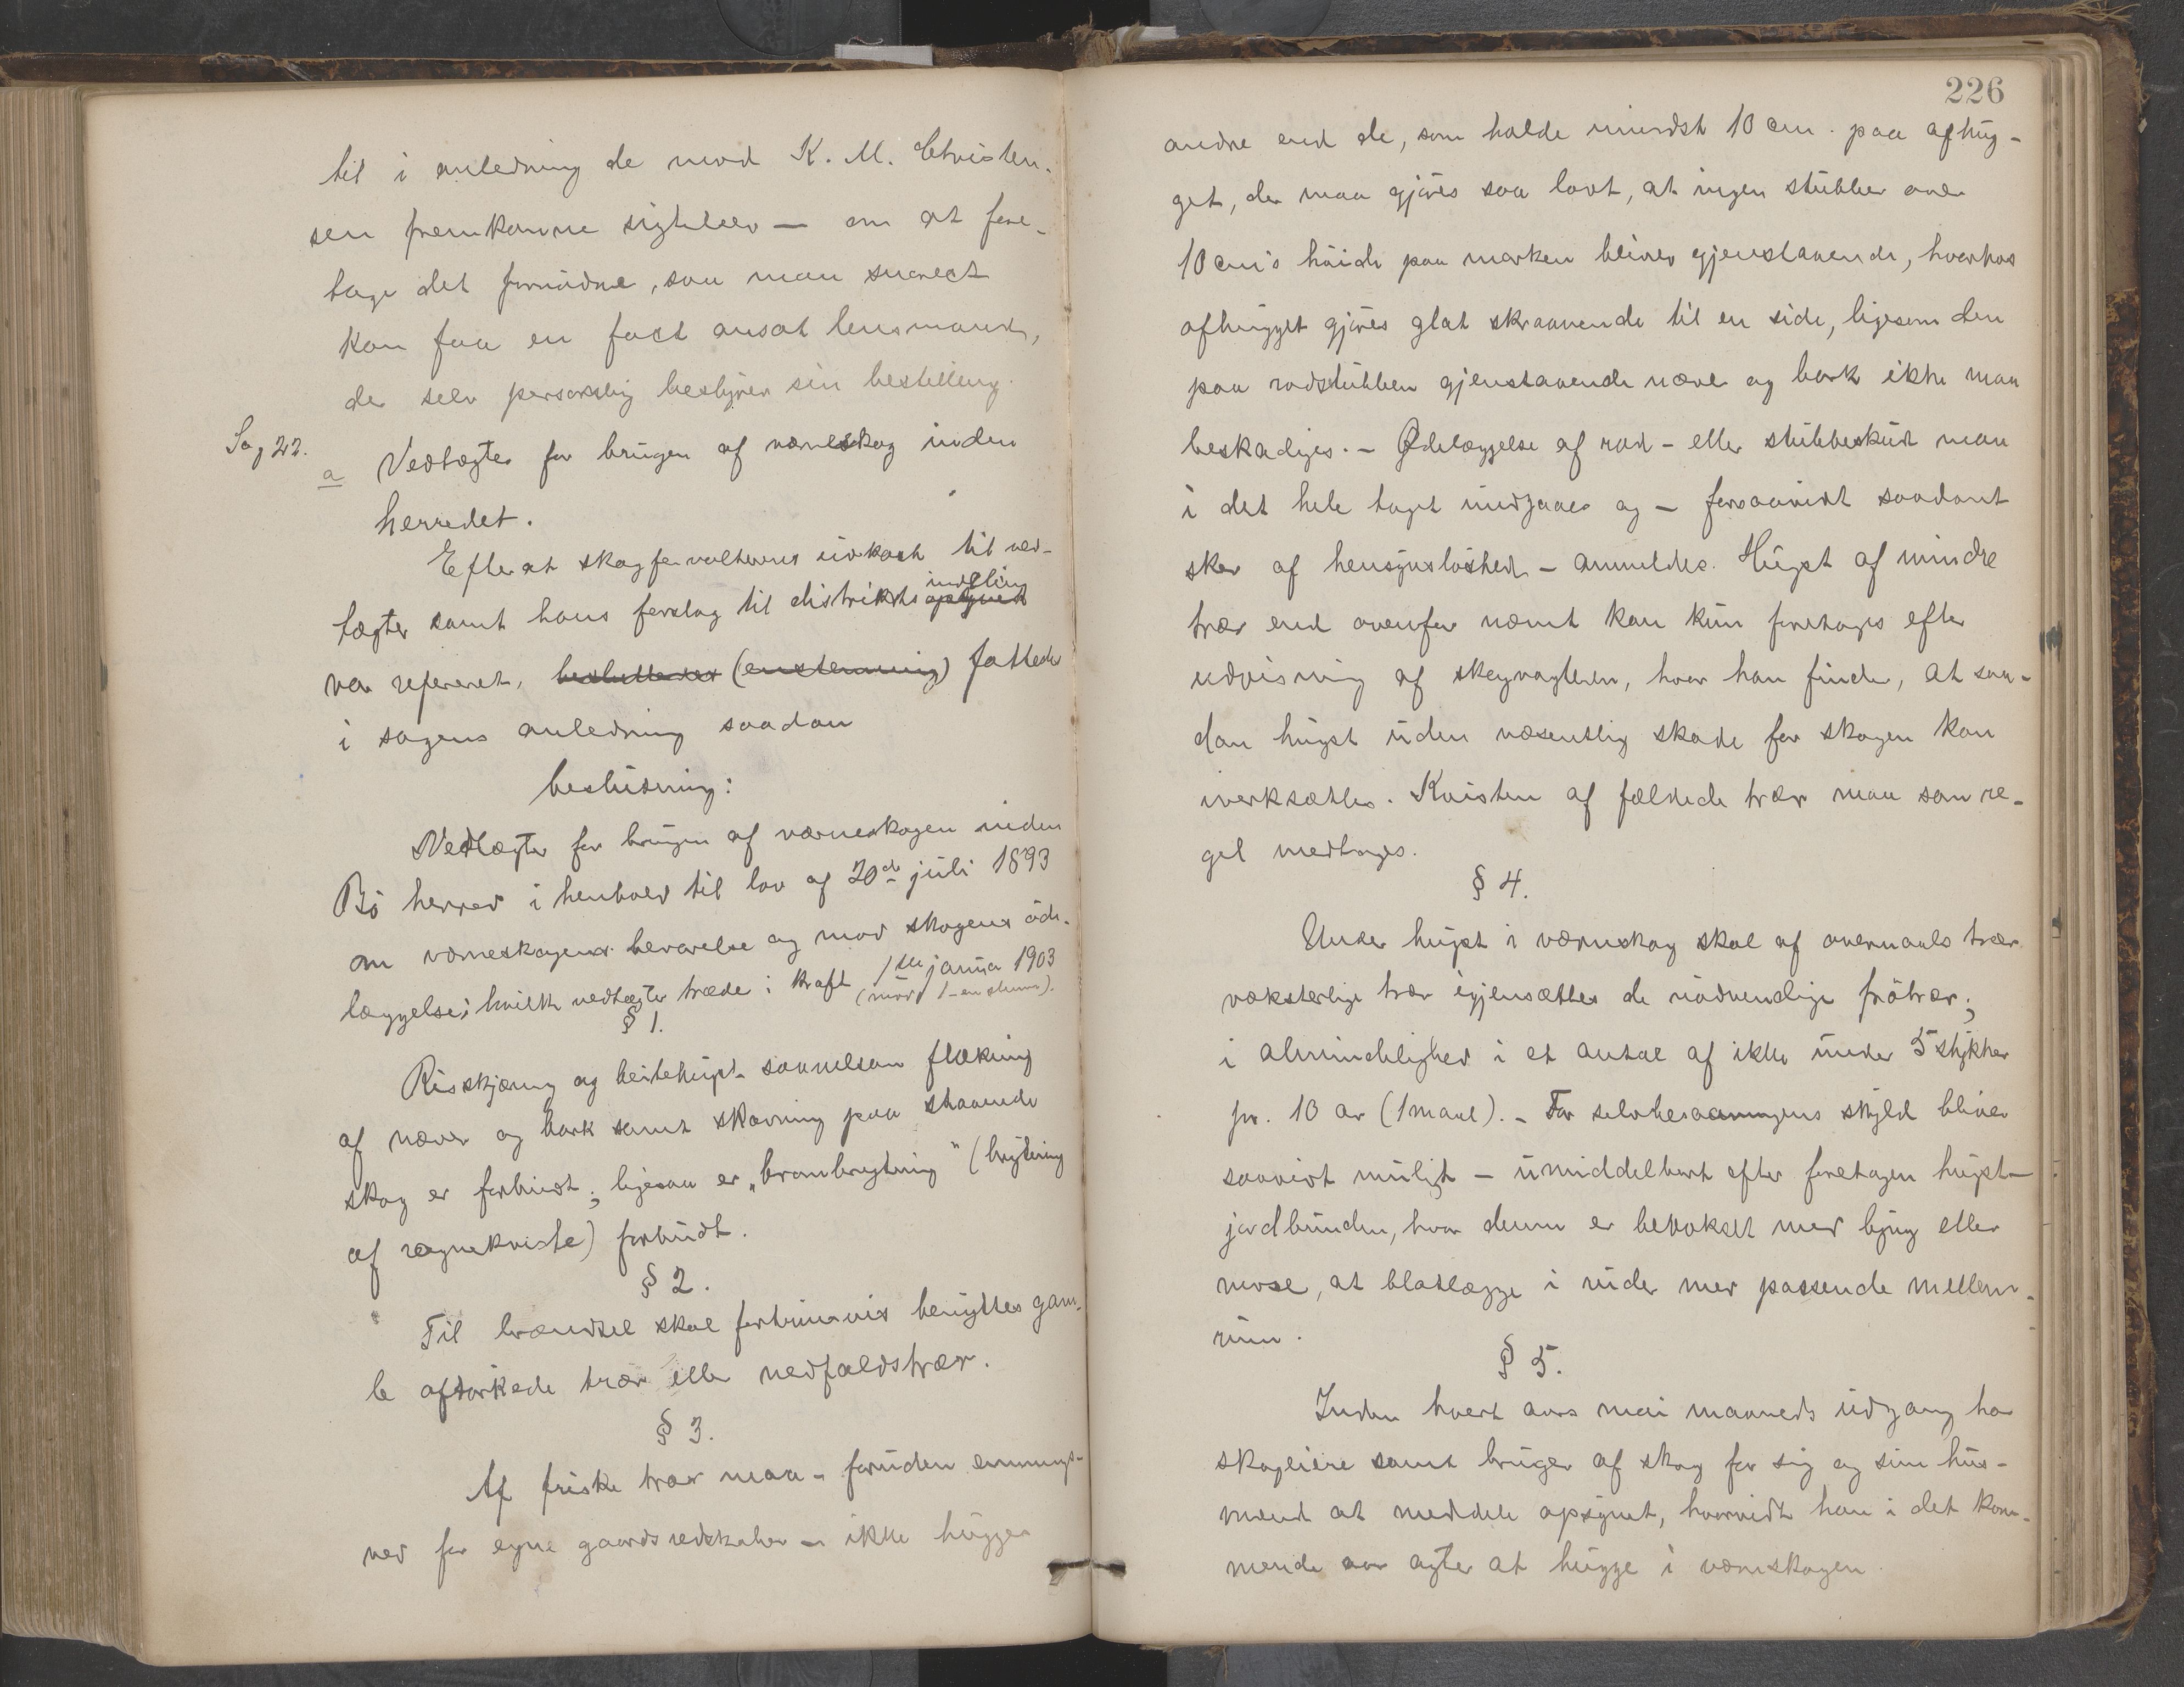 til i anledning de mod K. M. Christen-
sen fremkomne sigtelser — om at fore-
tage det fornødne, saa man snarest
kan faa en fast ansat lensmand,
der selv personlig bestyrer sin bestilling.
Sag 22.
a Vedtægter for brugen af værneskog inden
herredet.
Efterat skogforvalterens udkast til ved-
tægter samt hans forslag til distrikts inddeling
var refereret, besluttedes (enstemmig) fattedes
i sagens anledning saadan
beslutning:
Vedtægter for brugen af værneskogen inden
Bø herred i henhold til lov af 20de juli 1893
om værneskogens bevarelse og mod skogens øde-
læggelse; hvilke vedtægter træde i kraft 1ste januar 1903
(mod 1 en stemme).
§ 1.
Risskjæring og beitehugst saavelsom flækning
af næver og bark samt skavning paa staaende
skog er forbudt; ligesaa er „brombrytning" (brytning
af rognekviste) forbudt.
§ 2.
Til brændsel skal fortrinsvis benyttes gam-
le aftørkede trær eller nedfaldstrær.
§ 3.
Af friske trær maa – foruden emnings-
ved for egne gaardsredskaber – ikke hugges
226
andre end de, som holde mindst 10 cm. paa afhug-
get, der maa gjøres saa lavt, at ingen stubber over
10 cm's høide paa marken bliver gjenstaaende, hvorhos
afhugget gjøres glat skraanende til en side, ligesom den
paa rodstubben gjenstaaende næver og bark ikke maa
beskadiges. – Ødelæggelse af rod- eller stubbeskud maa
i det hele taget undgaaes og – forsaavidt saadant
sker af hensynsløshed – anmeldes. Hugst af mindre
trær end ovenfor nævnt kan kun foretages efter
udvisning af skogvogteren, hvor han finder, at saa-
dan hugst uden væsentlig skade for skogen kan
iverksættes. Kvisten af fældede trær maa som re-
gel medtages.
§ 4.
Under hugst i værneskog skal af overmaals trær
væksterlige trær igjensættes de nødvendige frøtrær;
i almindelighed i et antal af ikke under 5 stykker
pr. 10 ar (1 maal). – For selvbesaaningens skyld bliver
saavidt muligt – umiddelbart efter foretagen hugst –
jordbunden, hvor denne er bevokset med lyng eller
mose, at blatlægge i ruder med passende mellem-
rum.
§ 5.
Inden hvert aars mai maaneds udgang har
skogeiere samt bruger af skog for sig og sine hus-
mænd at meddele opsynet, hvorvidt han i det kom-
mende aar agter at hugge i værneskogen.